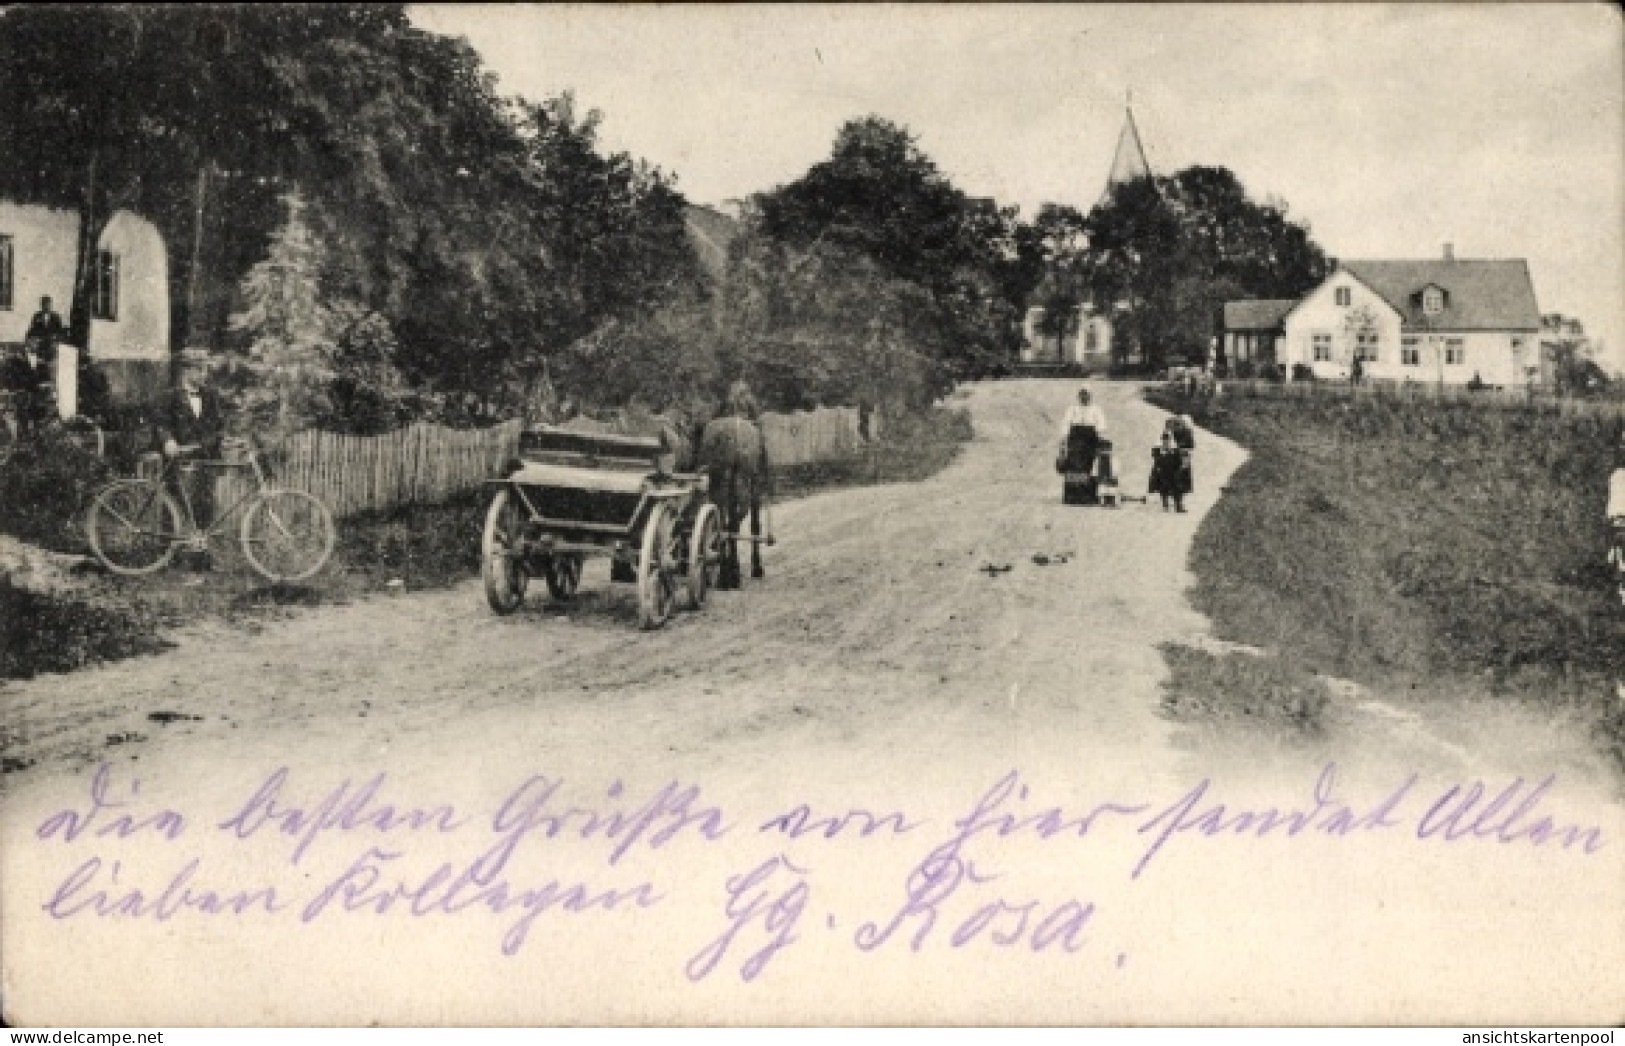 Die besten Grüße von hier sendet Allen
lieben Kollegen Gg. Rosa.
www.delcampe.net
ansichtskartenpool